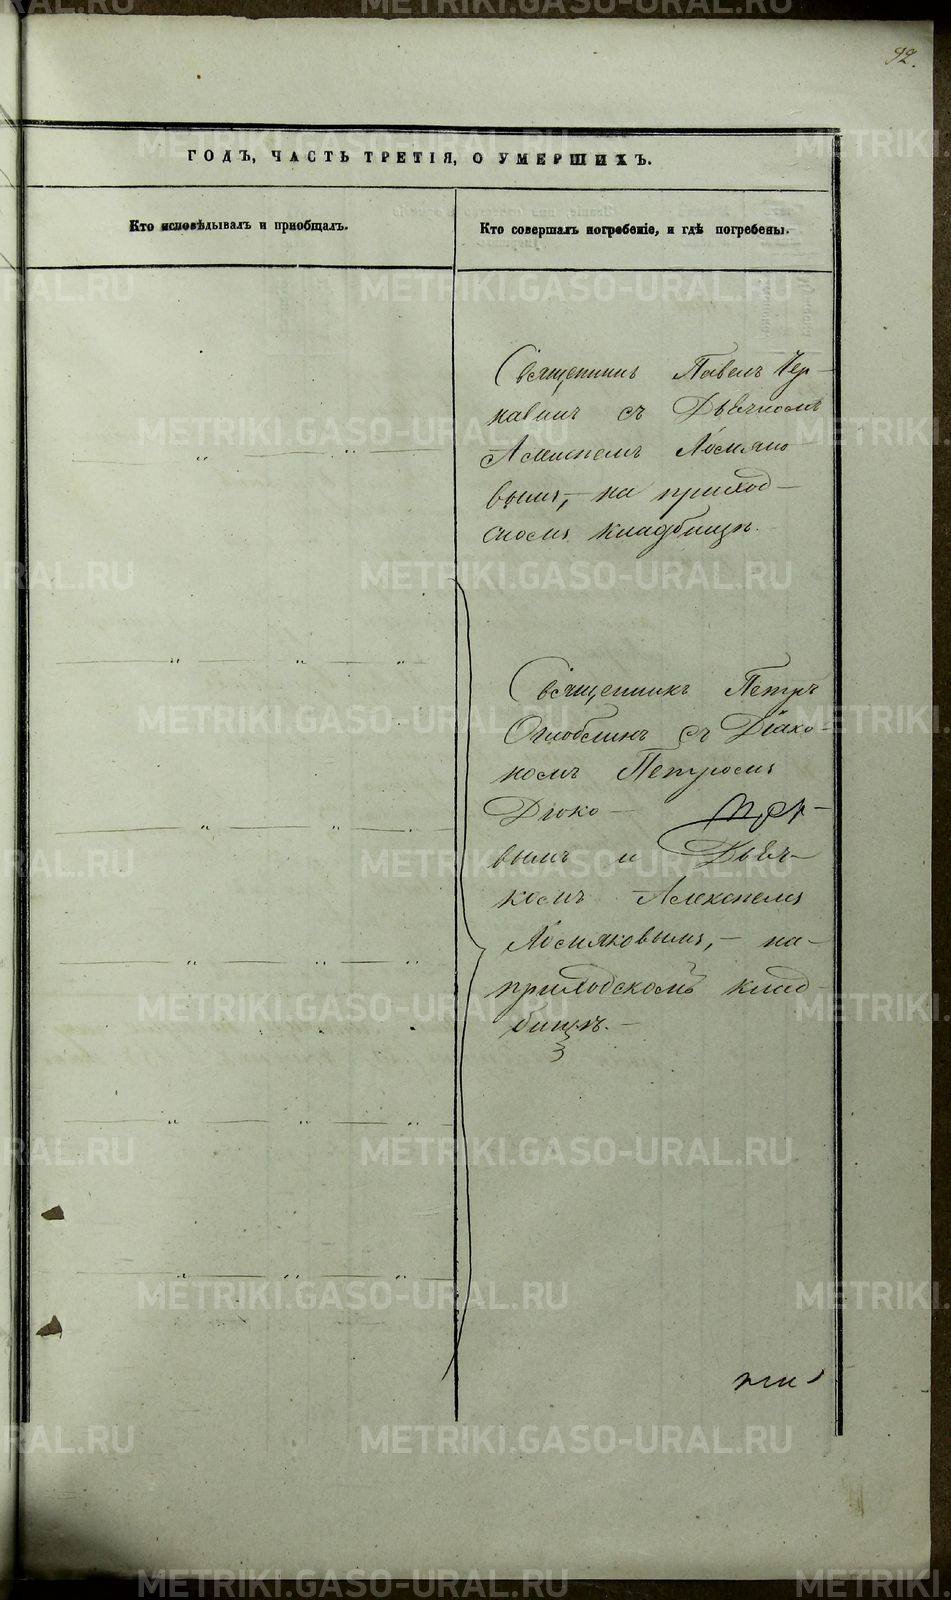 92.
ГОДЪ, ЧАСТЬ ТРЕТІЯ, О УМЕРШИХЪ.
Кто исповѣдывалъ и пріобщалъ.
Кто совершалъ погребеніе, и гдѣ погребены.
Священникъ Павелъ Чер-
навинъ съ Дьячкомъ
Алексѣемъ
вымъ, на приход-
скомъ кладбищѣ.
Священникъ Петръ
Оглоблинъ съ Діако-
номъ Петромъ
Дюко-
вымъ и Дьяч-
комъ Алексѣемъ
на
приходскомъ клад-
бищѣ.
METRIKI.GASO-URAL.RU